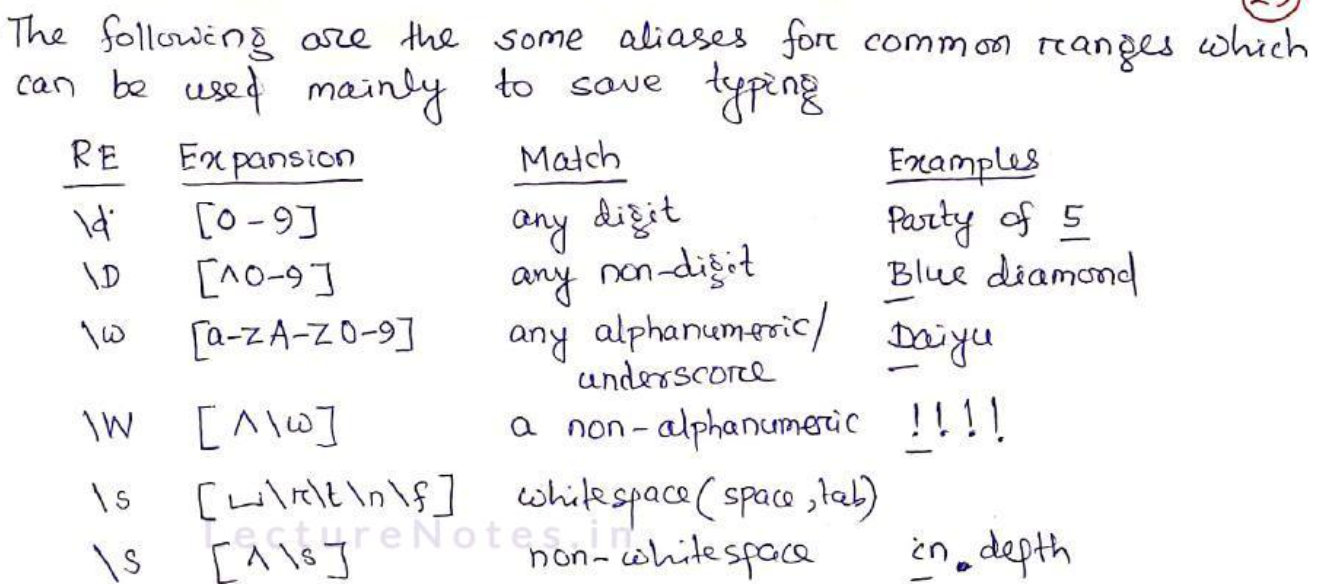 The following are the some aliases for common ranges which
can be used mainly to save typing
RE Expansion Match Examples
\d [0-9] any digit Party of 5
\D [^0-9] any non-digit Blue diamond
\w [a-zA-Z0-9] any alphanumeric/ Daiyu
underscore
\W [^\w] a non-alphanumeric !!!!
\s [␣\r\t\n\f] whitespace (space, tab)
LectureNotes.in
\S [^\s] non-whitespace in depth